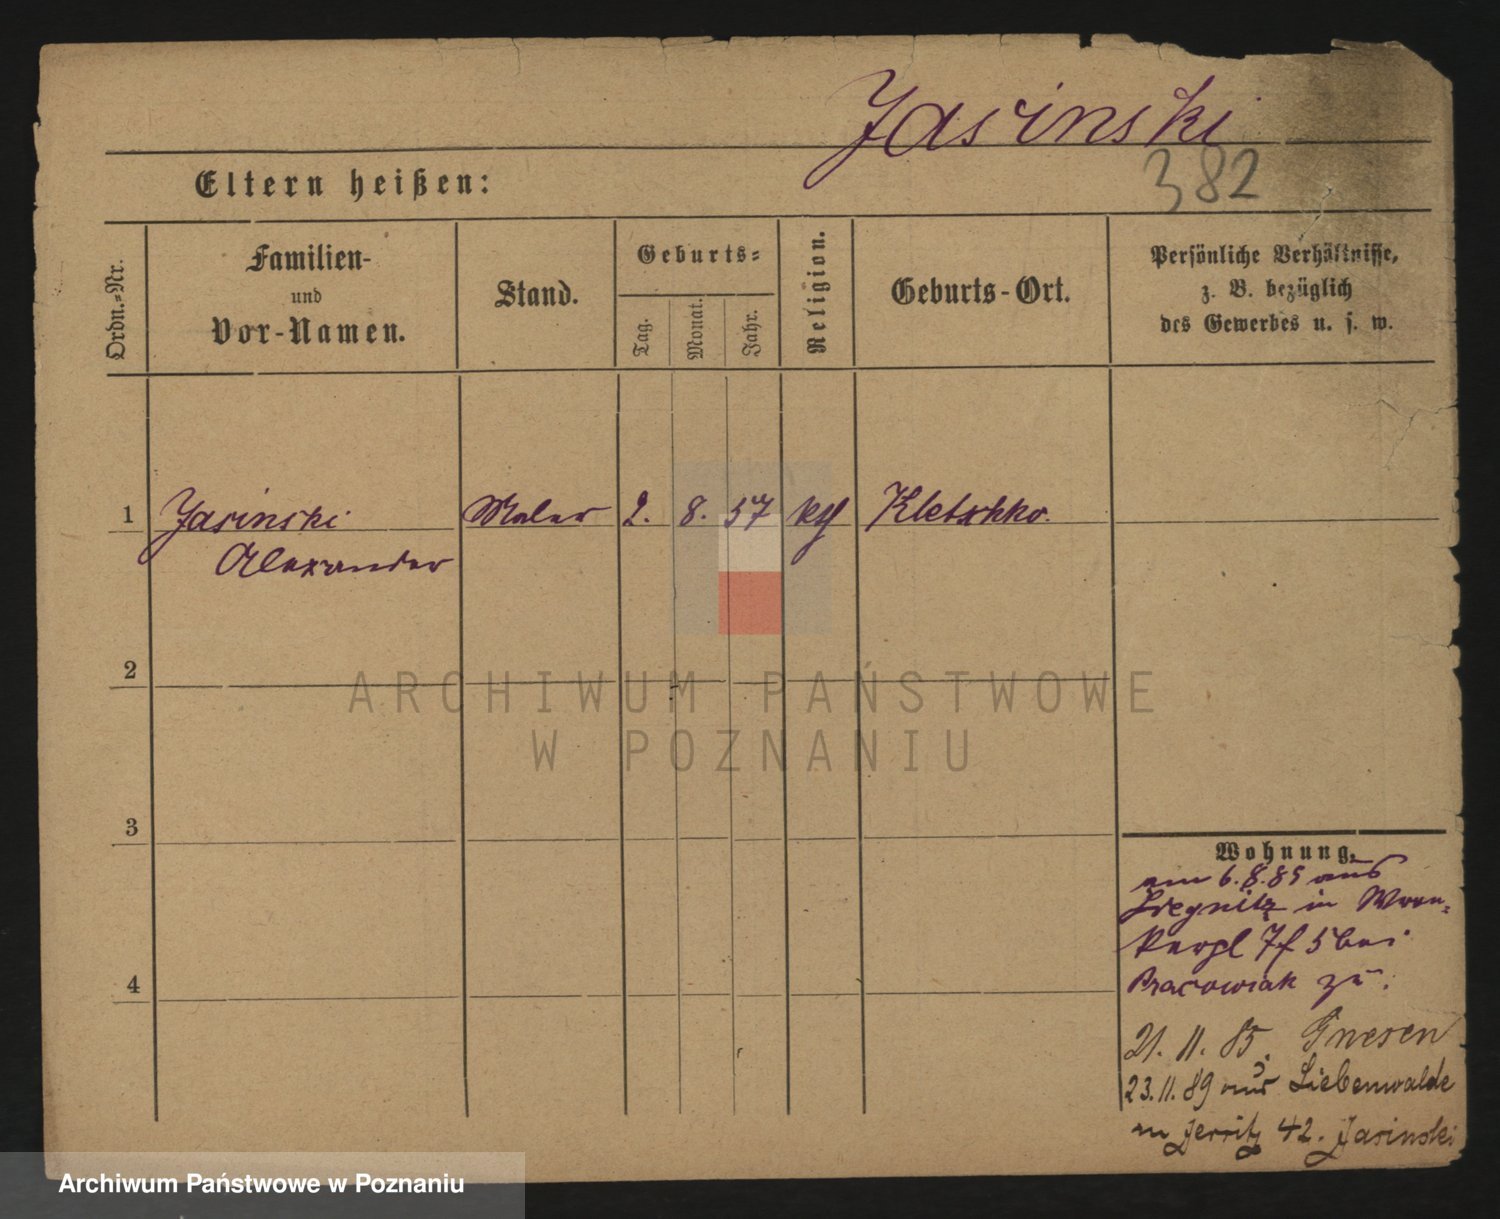 Jasinski
382
Eltern heißen:
Ordn.=Nr.
Familien-
und
Vor-Namen.
Stand.
Geburts=
Tag.
Monat.
Jahr.
Religion.
Geburts-Ort.
Persönliche Verhältnisse,
z. B. bezüglich
des Gewerbes u. s. w.
1 Jasinski Maler 2. 8. 57 kth Kletschko.
Alexander
2
3
4
Wohnung.
am 6.8.85 aus
Liegnitz in Wron-
5 bei
Pracowiak zu.
21. 11. 85. Gnesen
23.11.89 aus Liebenwalde
in Jersitz 42. Jasinski
ARCHIWUM PAŃSTWOWE
W POZNANIU
Archiwum Państwowe w Poznaniu